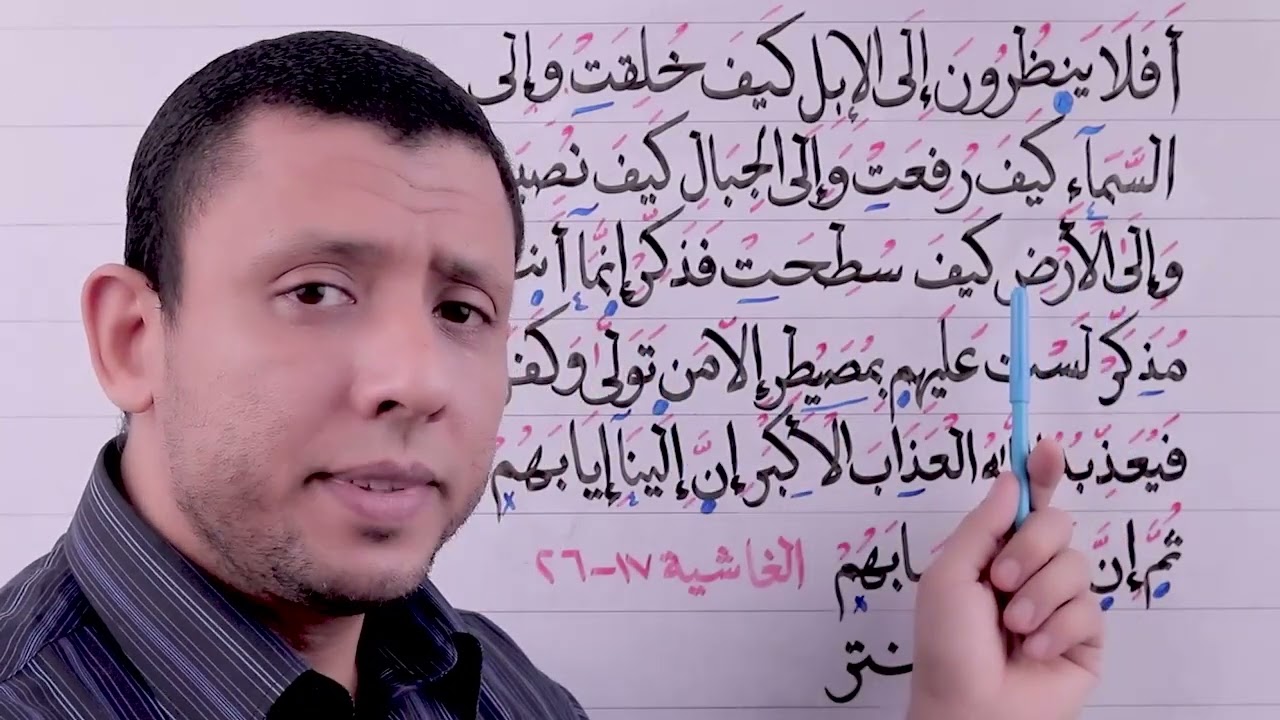 أَفَلَا يَنظُرُونَ إِلَى الْإِبِلِ كَيْفَ خُلِقَتْ وَإِلَى
السَّمَآءِ كَيْفَ رُفِعَتْ وَإِلَى الْجِبَالِ كَيْفَ
وَإِلَى الْأَرْضِ كَيْفَ سُطِحَتْ فَذَكِّرْ إِنَّمَآ
مُذَكِّرٌ لَسْتَ عَلَيْهِمْ بِمُصَيْطِرٍ إِلَّا مَنْ تَوَلَّىٰ
الْعَذَابَ الْأَكْبَرَ إِنَّ إِلَيْنَآ إِيَابَهُمْ
ثُمَّ إِنَّ
الغاشية ١٧-٢٦